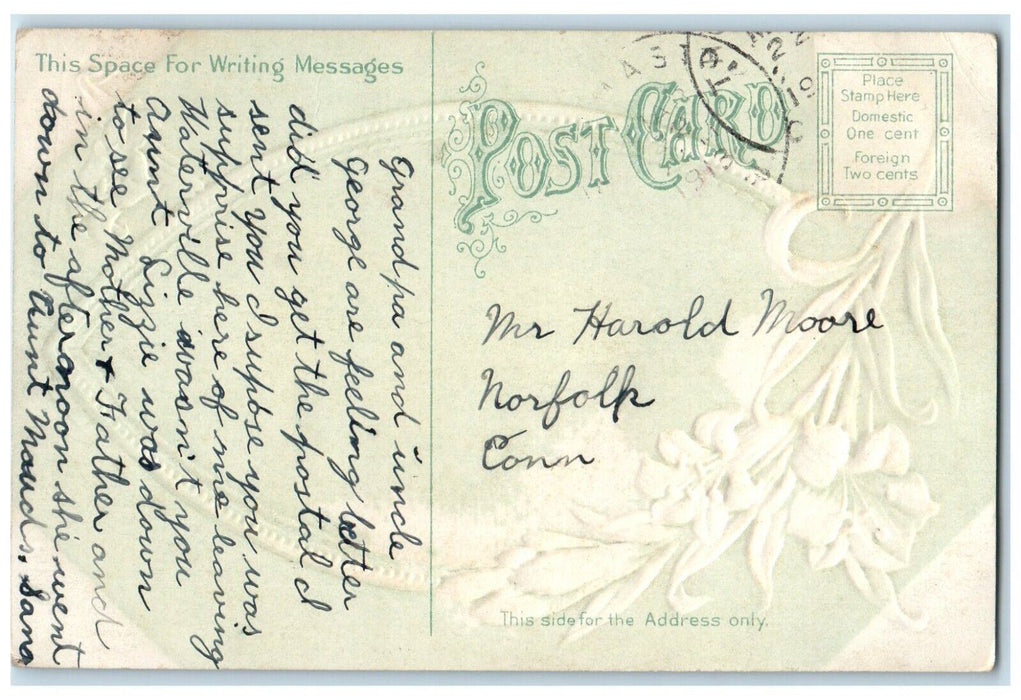 This Space For Writing Messages
Grandpa and uncle
George are feeling better
did you get the postal I
sent you I suppose you was
supprise here of me leaving
Waterville wasn't you
Aunt Lizzie was down
to see Mother & Father and
in the afternoon she went
down to Aunt Mauds, Sara
POST CARD
Place
Stamp Here
Domestic
One cent
Foreign
Two cents
Mr Harold Moore
Norfolk
Conn
This side for the Address only.